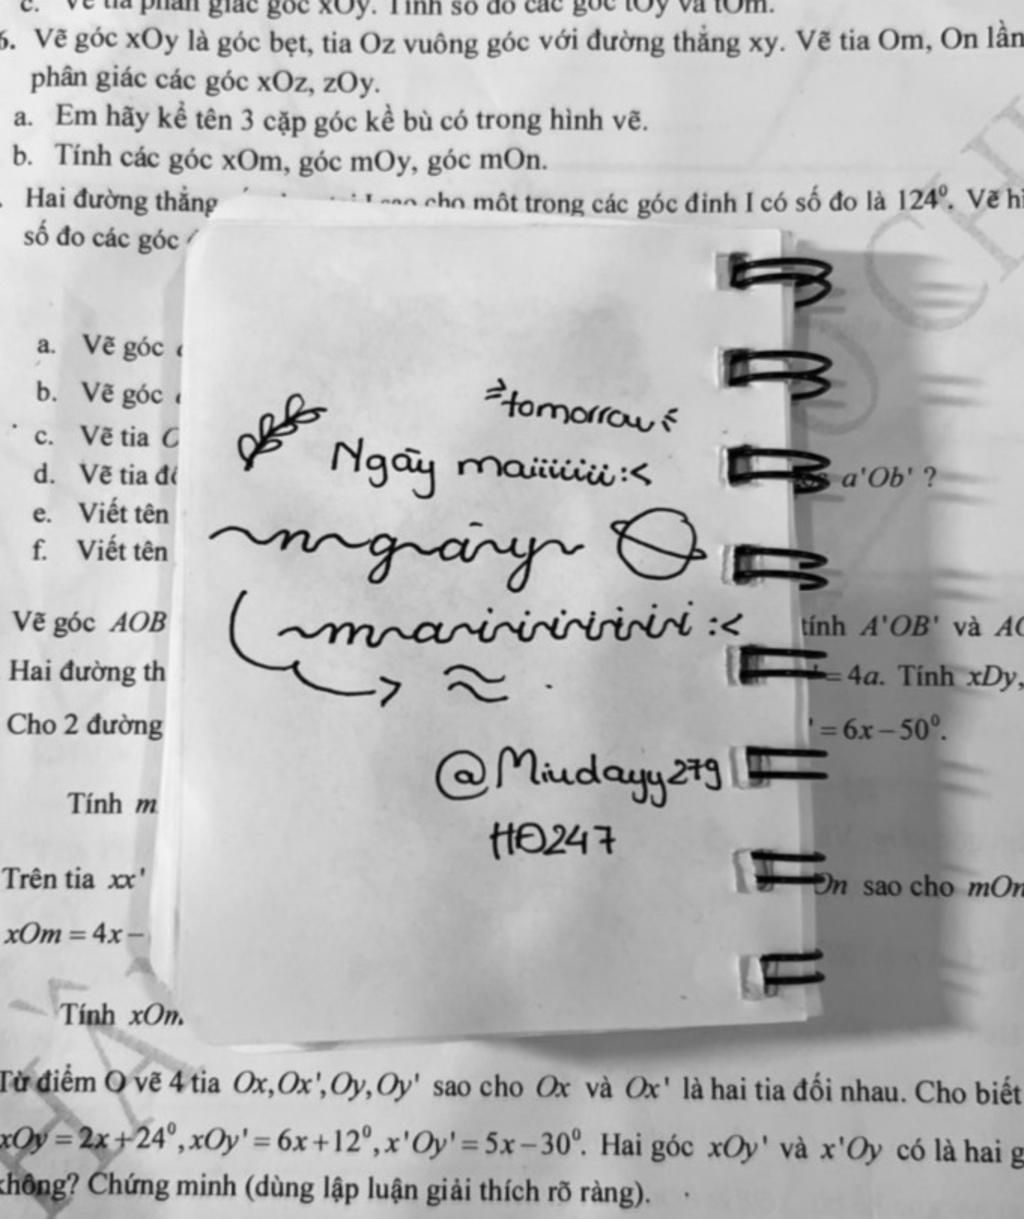 c. Vẽ tia phân giác góc xOy. Tính số đo các góc tOy và tOm.
6. Vẽ góc xOy là góc bẹt, tia Oz vuông góc với đường thẳng xy. Vẽ tia Om, On lần
phân giác các góc xOz, zOy.
a. Em hãy kể tên 3 cặp góc kề bù có trong hình vẽ.
b. Tính các góc xOm, góc mOy, góc mOn.
Hai đường thẳng sao cho một trong các góc đỉnh I có số đo là 124⁰. Vẽ hì
số đo các góc
a. Vẽ góc
b. Vẽ góc
c. Vẽ tia
d. Vẽ tia đố a'Ob' ?
e. Viết tên
f. Viết tên
Vẽ góc AOB tính A'OB' và AO
Hai đường th = 4a. Tính xDy,
Cho 2 đường ' = 6x − 50⁰.
Tính m
Trên tia xx' On sao cho mOn
xOm = 4x −
Tính xOn.
Từ điểm O vẽ 4 tia Ox, Ox', Oy, Oy' sao cho Ox và Ox' là hai tia đối nhau. Cho biết
xOy = 2x + 24⁰, xOy' = 6x + 12⁰, x'Oy' = 5x − 30⁰. Hai góc xOy' và x'Oy có là hai g
không? Chứng minh (dùng lập luận giải thích rõ ràng).
tomorrow
Ngày maiiiiiii :<
ngày
maiiiiiiii :<
@Miudayy279
HĐ247
CHÍ